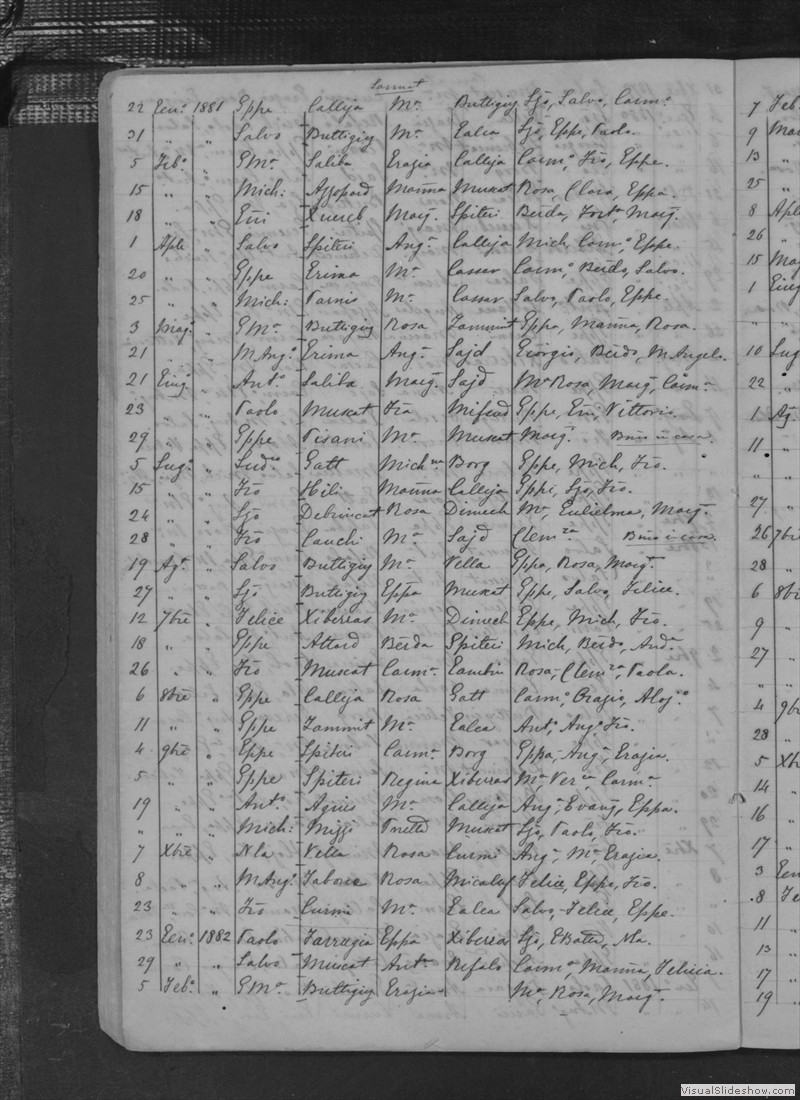 Sannat
22 Genº 1881 Gppe Calleja Mª Buttigieg Sjo, Salvo, Carmª
31 " " Salvo Buttigieg Mª Galea Sjo, Gppe, Paolo.
5 Febº " GMª Saliba Grazia Calleja Carmº, Fro, Gppe.
15 " " Mich: Azzopard Marina Muscat Rosa, Clara, Gppa.
18 " " Xuereb Margª Spiteri Berda, Fortª Margª.
1 Aple " Salvo Spiteri Angª Calleja Mich, Carmº, Gppe.
20 " " Gppe Grima Mª Cassar Carmº, Berdo, Salvo.
25 " " Mich: Farnis Mª Cassar Salvo, Paolo, Gppe.
3 Magº " GMª Buttigieg Rosa Zammit Gppa, Marina, Rosa.
21 " " M Angº Grima Angª Sajd Giorgio, Berdo, M Angelo
21 Giugº " Antº Saliba Margª Sajd Mª Rosa, Margª, Carmª
23 " " Paolo Muscat Fra Mifsud Gppe, Vittorio.
29 " " Gppe Pisani Mª Muscat Margª.
5 Lugº " Gatt Borg Gppe, Mich, Fro.
15 " " Fro Hili Marina Calleja Gppe, Sjo, Fro.
24 " " Sjo Debrincat Rosa Dimech Mª, Gulielma, Margª.
28 " " Fro Cauchi Mª Sajd Clemza
19 Agº " Salvo Buttigieg Mª Vella Gppa, Rosa, Margª.
27 " " Sjo Buttigieg Gppa Muscat Gppe, Salvo, Felice.
12 7bre " Felice Xiberras Mª Dimech Gppe, Mich, Fro.
18 " " Gppe Attard Berda Spiteri Mich, Berdo, Andª
26 " " Fro Muscat Carmª Gambin Rosa, Clemza, Paola.
6 8bre " Gppe Calleja Rosa Gatt Carmº, Orazio, Alojº
11 " " Gppe Zammit Mª Galea Antº, Angº, Fro.
4 9bre " Gppe Spiteri Carmª Borg Gppa, Angª, Grazia.
5 " " Gppe Spiteri Regina Xiberras Mª, Verca, Carmª
19 " " Antº Agius Mª Calleja Angª, Evangª, Gppa.
" " " Mich: Mizzi Muscat Sjo, Paolo, Fro.
7 Xbre " Nla Vella Rosa Curmi Angª, Mª, Grazia.
8 " " M Angº Tabone Rosa Micalef Felice, Gppe, Fro.
23 " " Fro Curmi Mª Galea Salvo, Felice, Gppe.
23 Genº 1882 Paolo Farrugia Gppa Xiberras Sjo, GBatta, Nla.
29 " " Salvo Muscat Antª Refalo Carmª, Marina, Felicia.
5 Febº " GMª Buttigieg Grazia Mª, Rosa, Margª.
7 Feb.
9 Mar
13 "
25 "
8 Aple
26 "
15 Mag
1 Giug
" "
10 Lug
22 "
1 Ag.
11 "
" "
27 "
26 7bre
28 "
6 8bre
9 "
27 "
" "
4 9bre
28 "
5 Xbre
14 "
16 "
17 "
3 Gen
8 Fe
11 "
13 "
17 "
19 "
VisualSlideshow.com